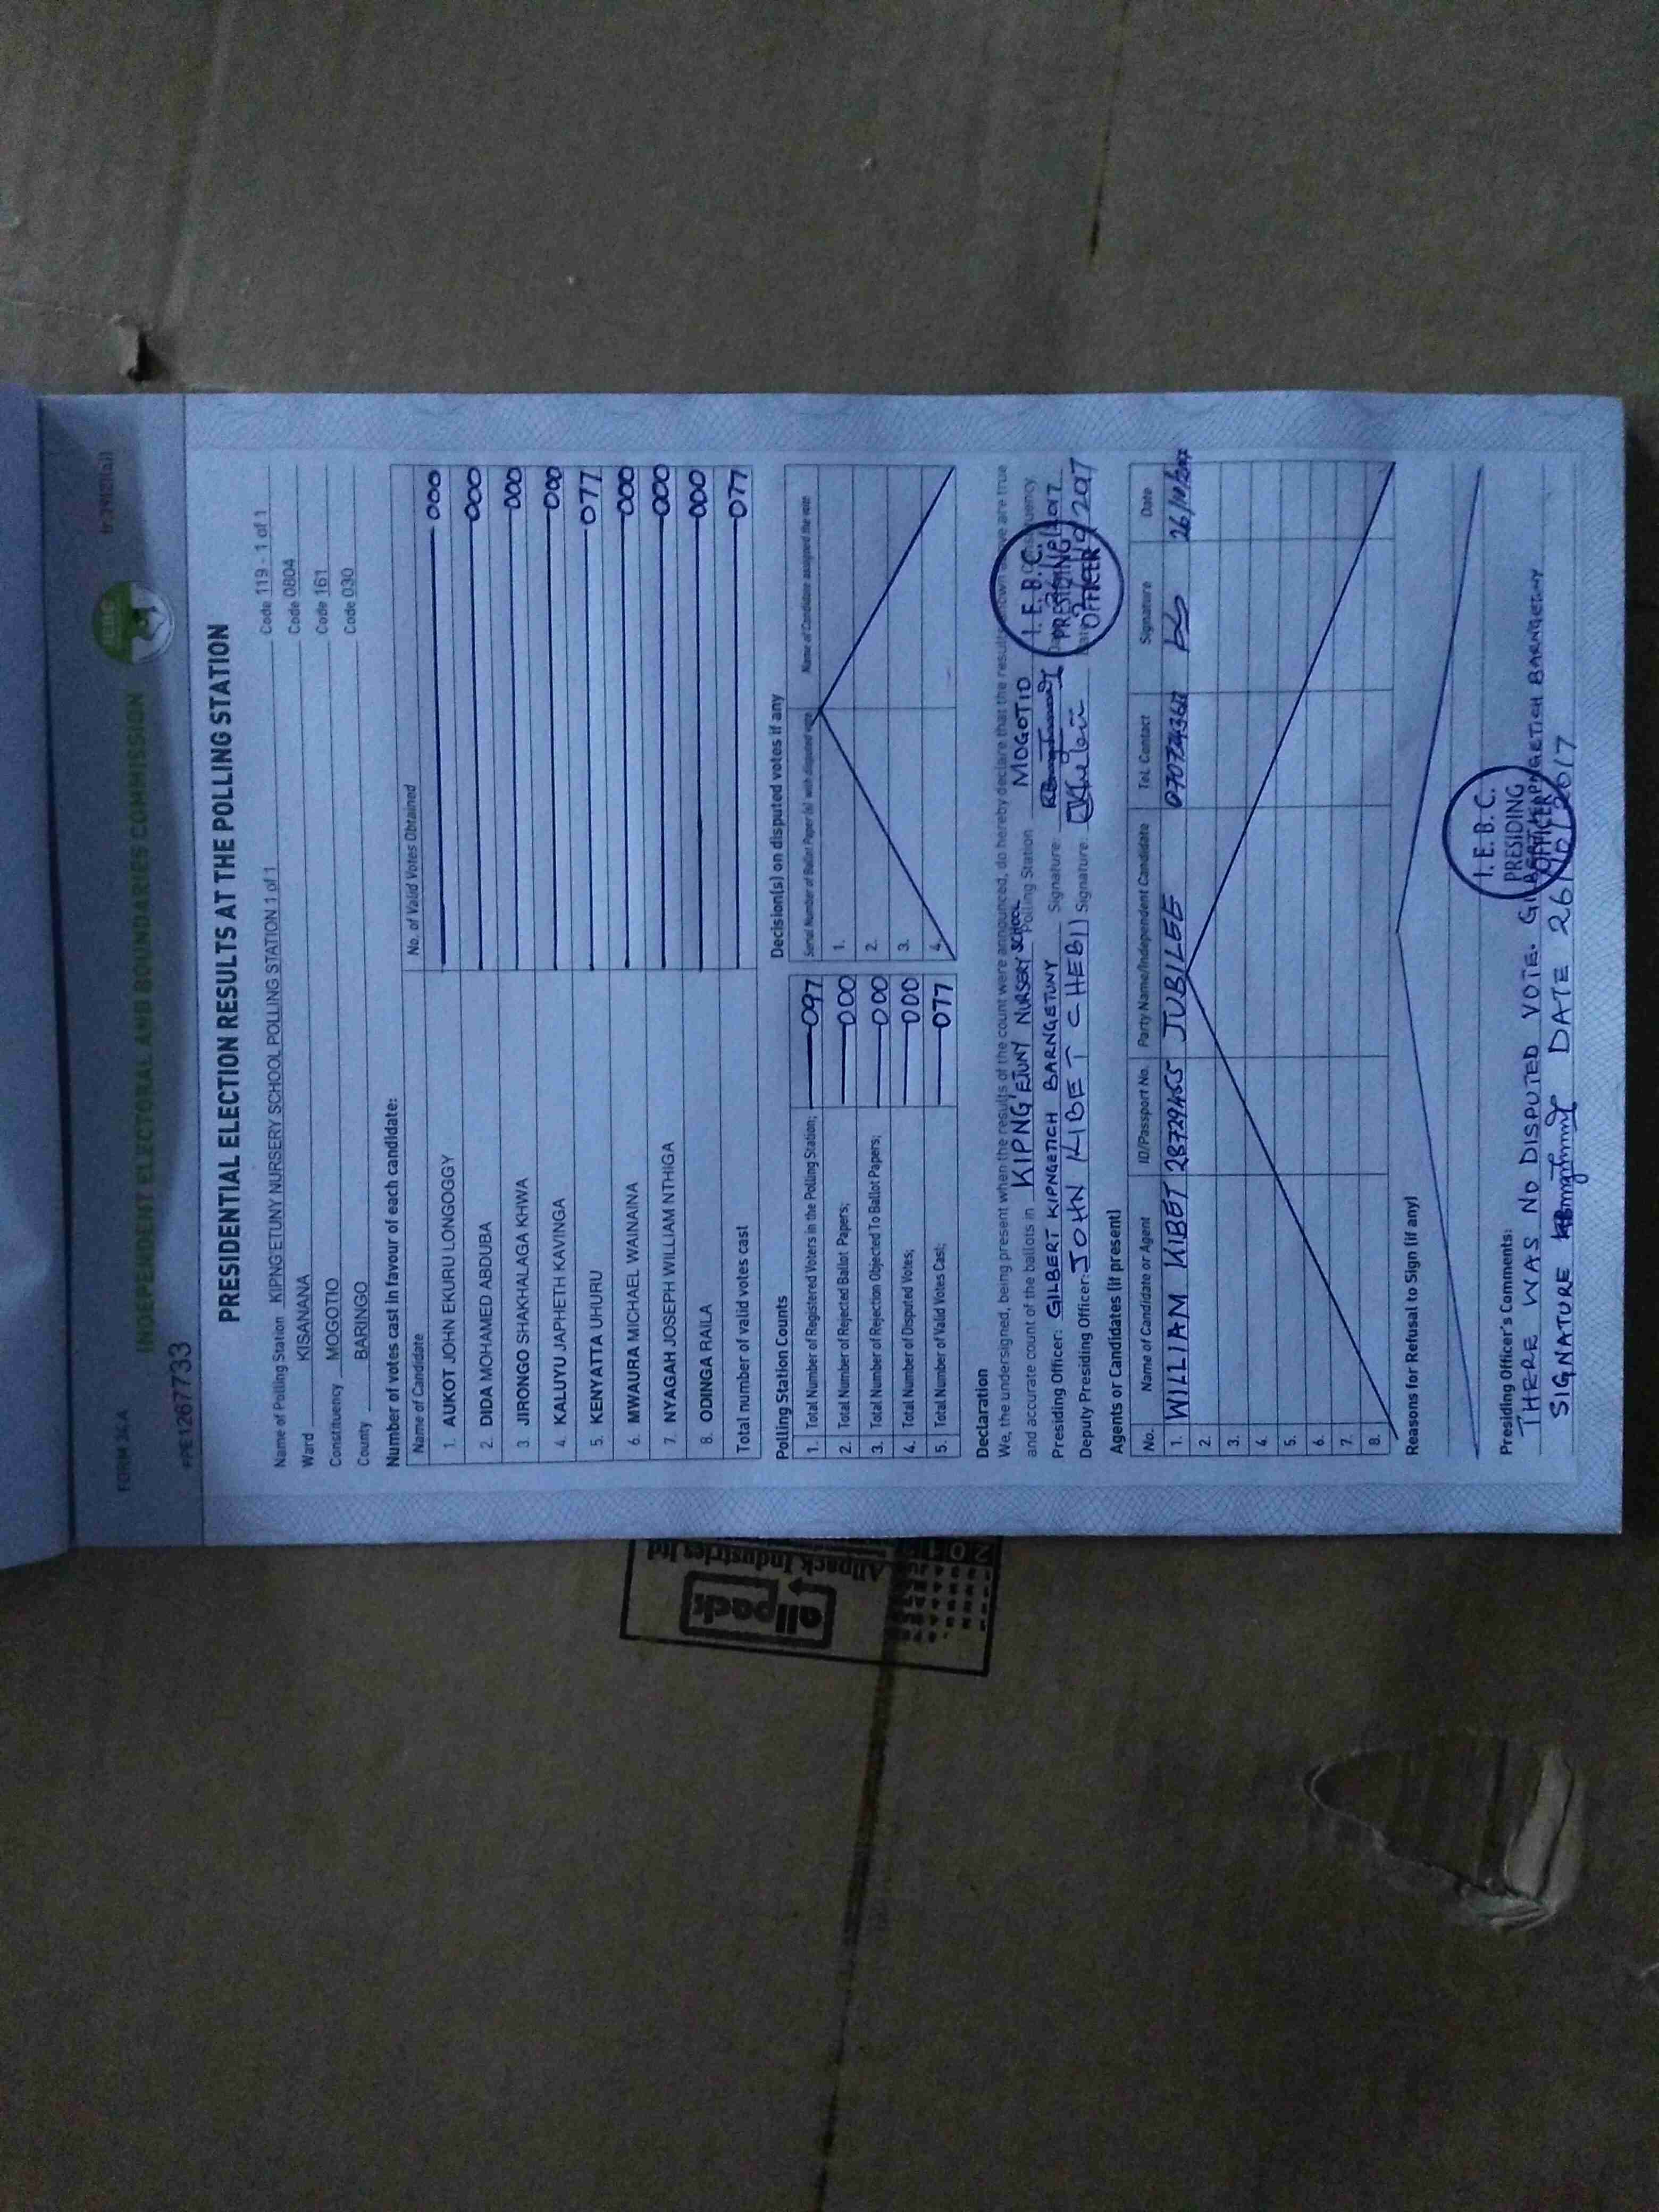 FORM 34A
INDEPENDENT ELECTORAL AND BOUNDARIES COMMISSION
IEBC
*PE1267733
PRESIDENTIAL ELECTION RESULTS AT THE POLLING STATION
Name of Polling Station KIPNG'ETUNY NURSERY SCHOOL POLLING STATION 1 of 1 Code 119 - 1 of 1
Ward KISANANA Code 0804
Constituency MOGOTIO Code 161
County BARINGO Code 030
Number of votes cast in favour of each candidate:
Name of Candidate No. of Valid Votes Obtained
1. AUKOT JOHN EKURU LONGOGGY 000
2. DIDA MOHAMED ABDUBA 000
3. JIRONGO SHAKHALAGA KHWA 000
4. KALUYU JAPHETH KAVINGA 000
5. KENYATTA UHURU 077
6. MWAURA MICHAEL WAINAINA 000
7. NYAGAH JOSEPH WILLIAM NTHIGA 000
8. ODINGA RAILA 000
Total number of valid votes cast 077
Polling Station Counts
1. Total Number of Registered Voters in the Polling Station; 097
2. Total Number of Rejected Ballot Papers; 000
3. Total Number of Rejection Objected To Ballot Papers; 000
4. Total Number of Disputed Votes; 000
5. Total Number of Valid Votes Cast; 077
Decision(s) on disputed votes if any
Serial Number of Ballot Paper (s) with disputed vote Name of Candidate assigned the vote
1.
2.
3.
4.
Declaration
We, the undersigned, being present when the results of the count were announced, do hereby declare that the results shown above are true
and accurate count of the ballots in KIPNG'ETUNY NURSERY SCHOOL Polling Station MOGOTIO Constituency
Presiding Officer: GILBERT KIPNGETICH BARNGETUNY Signature:
Deputy Presiding Officer: JOHN KIBET CHEBII Signature:
I. E. B. C.
PRESIDING
OFFICER
Agents or Candidates (if present)
No. Name of Candidate or Agent ID/Passport No. Party Name/Independent Candidate Tel. Contact Signature Date
1. WILLIAM KIBET 28729455 JUBILEE 26/10/2017
2.
3.
4.
5.
6.
7.
8.
Reasons for Refusal to Sign (if any)
Presiding Officer's Comments:
THERE WAS NO DISPUTED VOTE. GILBERT KIPNGETICH BARNGETUNY
SIGNATURE DATE 26/10/2017
I. E. B. C.
PRESIDING
OFFICER
allpack
Allpack Industries ltd